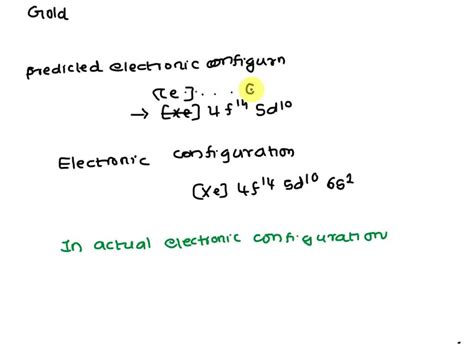 Gold
Predicted electronic configuran
[Ce].... 6
→ [Xe] 4f¹⁴ 5d¹⁰
Electronic configuration
[Xe] 4f¹⁴ 5d¹⁰ 6s¹
In actual electronic configuration